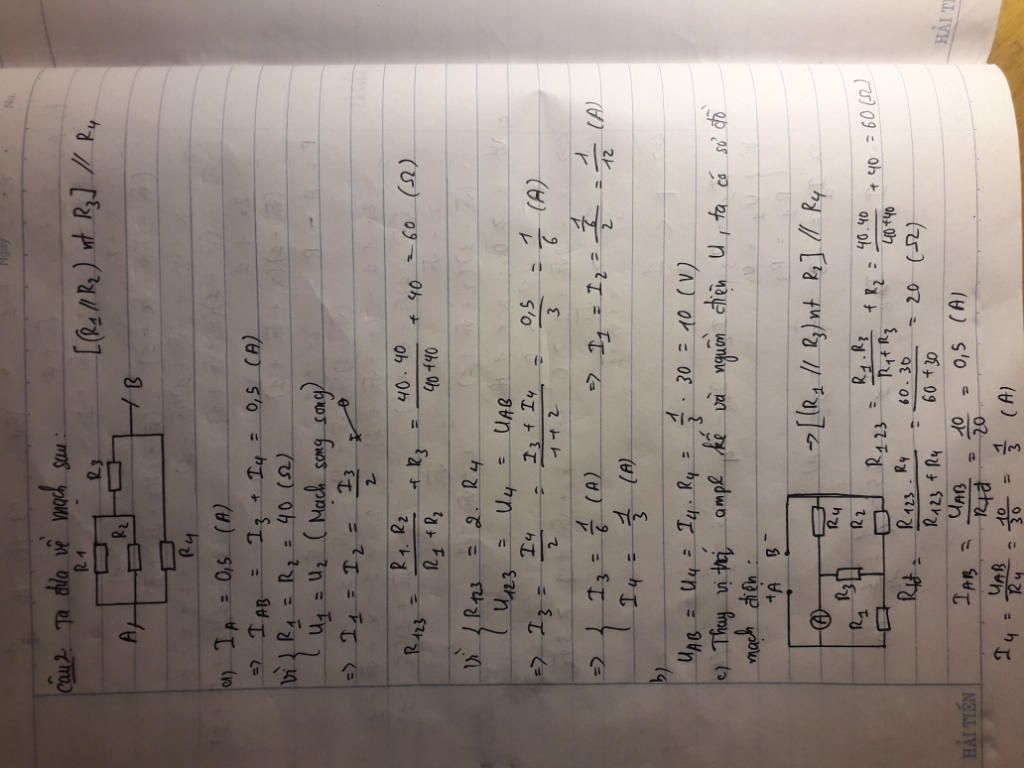 Câu 2: Ta đưa về mạch sau:
R1
R2
R3
A
B
R4
[(R1 // R2) nt R3] // R4
a) IA = 0,5 (A)
=> IAB = I3 + I4 = 0,5 (A)
Vì { R1 = R2 = 40 (Ω)
U1 = U2 (Mạch song song)
=> I1 = I2 = I3/2
R123 = R1.R2/(R1 + R2) + R3 = 40.40/(40+40) + 40 = 60 (Ω)
Vì { R123 = 2.R4
U123 = U4 = UAB
=> I3 = I4/2 = (I3 + I4)/(1+2) = 0,5/3 = 1/6 (A)
=> { I3 = 1/6 (A)
I4 = 1/3 (A)
=> I1 = I2 = (1/6)/2 = 1/12 (A)
b)
UAB = U4 = I4.R4 = 1/3 . 30 = 10 (V)
c) Thay vị trí ampe kế và nguồn điện U, ta có sơ đồ
mạch điện:
+A B-
A
R4
R3
R1
R2
=> [(R1 // R3) nt R2] // R4
R123 = R1.R3/(R1+R3) + R2 = 40.40/(40+40) + 40 = 60 (Ω)
Rtđ = R123.R4/(R123 + R4) = 60.30/(60+30) = 20 (Ω)
IAB = UAB/Rtđ = 10/20 = 0,5 (A)
I4 = UAB/R4 = 10/30 = 1/3 (A)
HẢI TIẾN